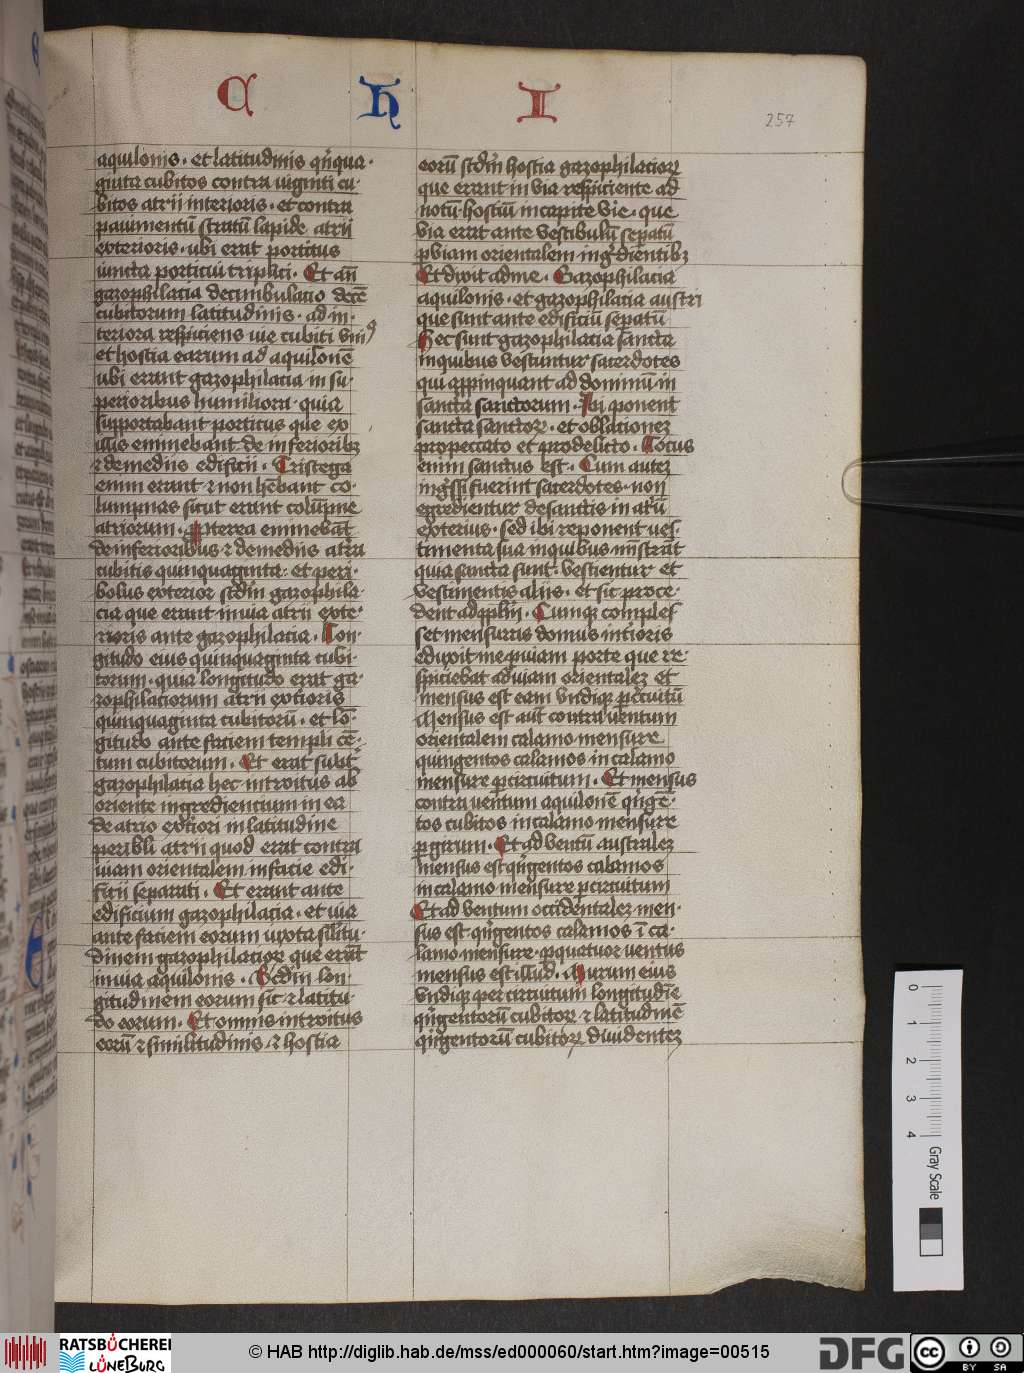 C H I
257
aquilonis · et latitudinis qͥnqua ·
ginta cubitos contra uiginti cu ·
bitos atrii interioris · et contra
pauimentū stratū lapide atrij
exterioris · ubi erat porticus
iuncta porticui triplici · Et an̄
gazophilacia deambulacio decē
cubitorum latitudinis · ad in ·
teriora respiciens uie cubiti vniꝰ
et hostia earum ad aquilonē
ubi erant gazophilacia in su ·
perioribus humiliora · quia
supportabant porticus que ex
illis eminebant de inferioribꝫ
⁊ de mediis edificii · Tristega
enim erant ⁊ non hēbant co ·
lumpnas sicut erant colūpne
atriorum · ꝓpterea eminebāt
de inferioribus ⁊ de mediis at͛ra
cubitis quinquaginta · et peri ·
bolus exterior scd̄m gazophila ·
cia que erant in uia atrii exte ·
rioris ante gazophilacia · Lon ·
gitudo eius quinquaginta cubi ·
torum · quia longitudo erat ga ·
zophilaciorum atrii ext͛ioris
quinquaginta cubitorū · et lō ·
gitudo ante faciem templi cē ·
tum cubitorum · Et erat subt͛
gazophilacia hec introitus ab
oriente ingrediencium in ea
de atrio ext͛iori in latitudine
peribli atrii quod erat contra
uiam orientalem in facie edi ·
ficii separati · Et erant ante
edificium gazophilacia · et uia
ante faciem eorum iuxta sīlitu ·
dinem gazophilacioꝝ que erāt
in uia aquilonis · Scd̄m lon ·
gitudinem eorum sic ⁊ latitu ·
do eorum · Et omnis introitus
eorū ⁊ similitudinis · ⁊ hostia
eorū scd̄m hostia gazophilacioꝝ
que erant in via respiciente ad
notū · hostiū in capite vie · que
via erat ante vestibulū sepatū
ꝑ viam orientalem ingͥdientibꝫ
Et dixit ad me · Gazophilacia
aquilonis · et gazophilacia austri
que sunt ante edificiū sepatū
Hec sunt gazophilacia sancta
in quibus vestuntur sacerdotes
qui aꝓpinquant ad dominū in
sancta sanctorum · Ibi ponent
sancta sanctoꝝ · et oblationeꝫ
pro peccato et pro delicto · Locus
enim sanctus est · Cum auteꝫ
ingͤssi fuerint sacerdotes · non
egredientur de sanctis in atͥū
exterius · sed ibi reponent ues ·
timenta sua in quibus mīstrāt
quia sancta sunt · Vestientur et
vestimentis aliis · et sic ꝓce ·
dent ad pplm̄ · Cumqꝫ comples
set mensuras domus int͛ioris
eduxit me ꝑ uiam porte que re ·
spiciebat ad uiam orientaleꝫ et
mensus est eam vndiqꝫ ꝑ circuitū
Mensus est aut̄ contra uentum
orientalem calamo mensure
quingentos calamos in calamo
mensure ꝑ circuitum · Et mensus
contra uentum aquilonē qͥngē ·
tos cubitos in calamo mensure
ꝑ girum · Et ad ventū australeꝫ
mensus est qͥngentos calamos
in calamo mensure ꝑ circuitum
Et ad ventum occidentaleꝫ men ·
sus est qͥngentos calamos ī ca ·
lamo mensure · ꝑ quatuor uentus
mensus est illud · Murum eius
vndiqꝫ per circuitum longitudīe
qͥngentorū cubitoꝝ ⁊ latitudinē
qͥngentorū cubitoꝝ diuidenteꝫ
0 1 2 3 4
Gray Scale
RATSBÜCHEREI
LÜNEBURG
© HAB http://diglib.hab.de/mss/ed000060/start.htm?image=00515
DFG
cc BY SA